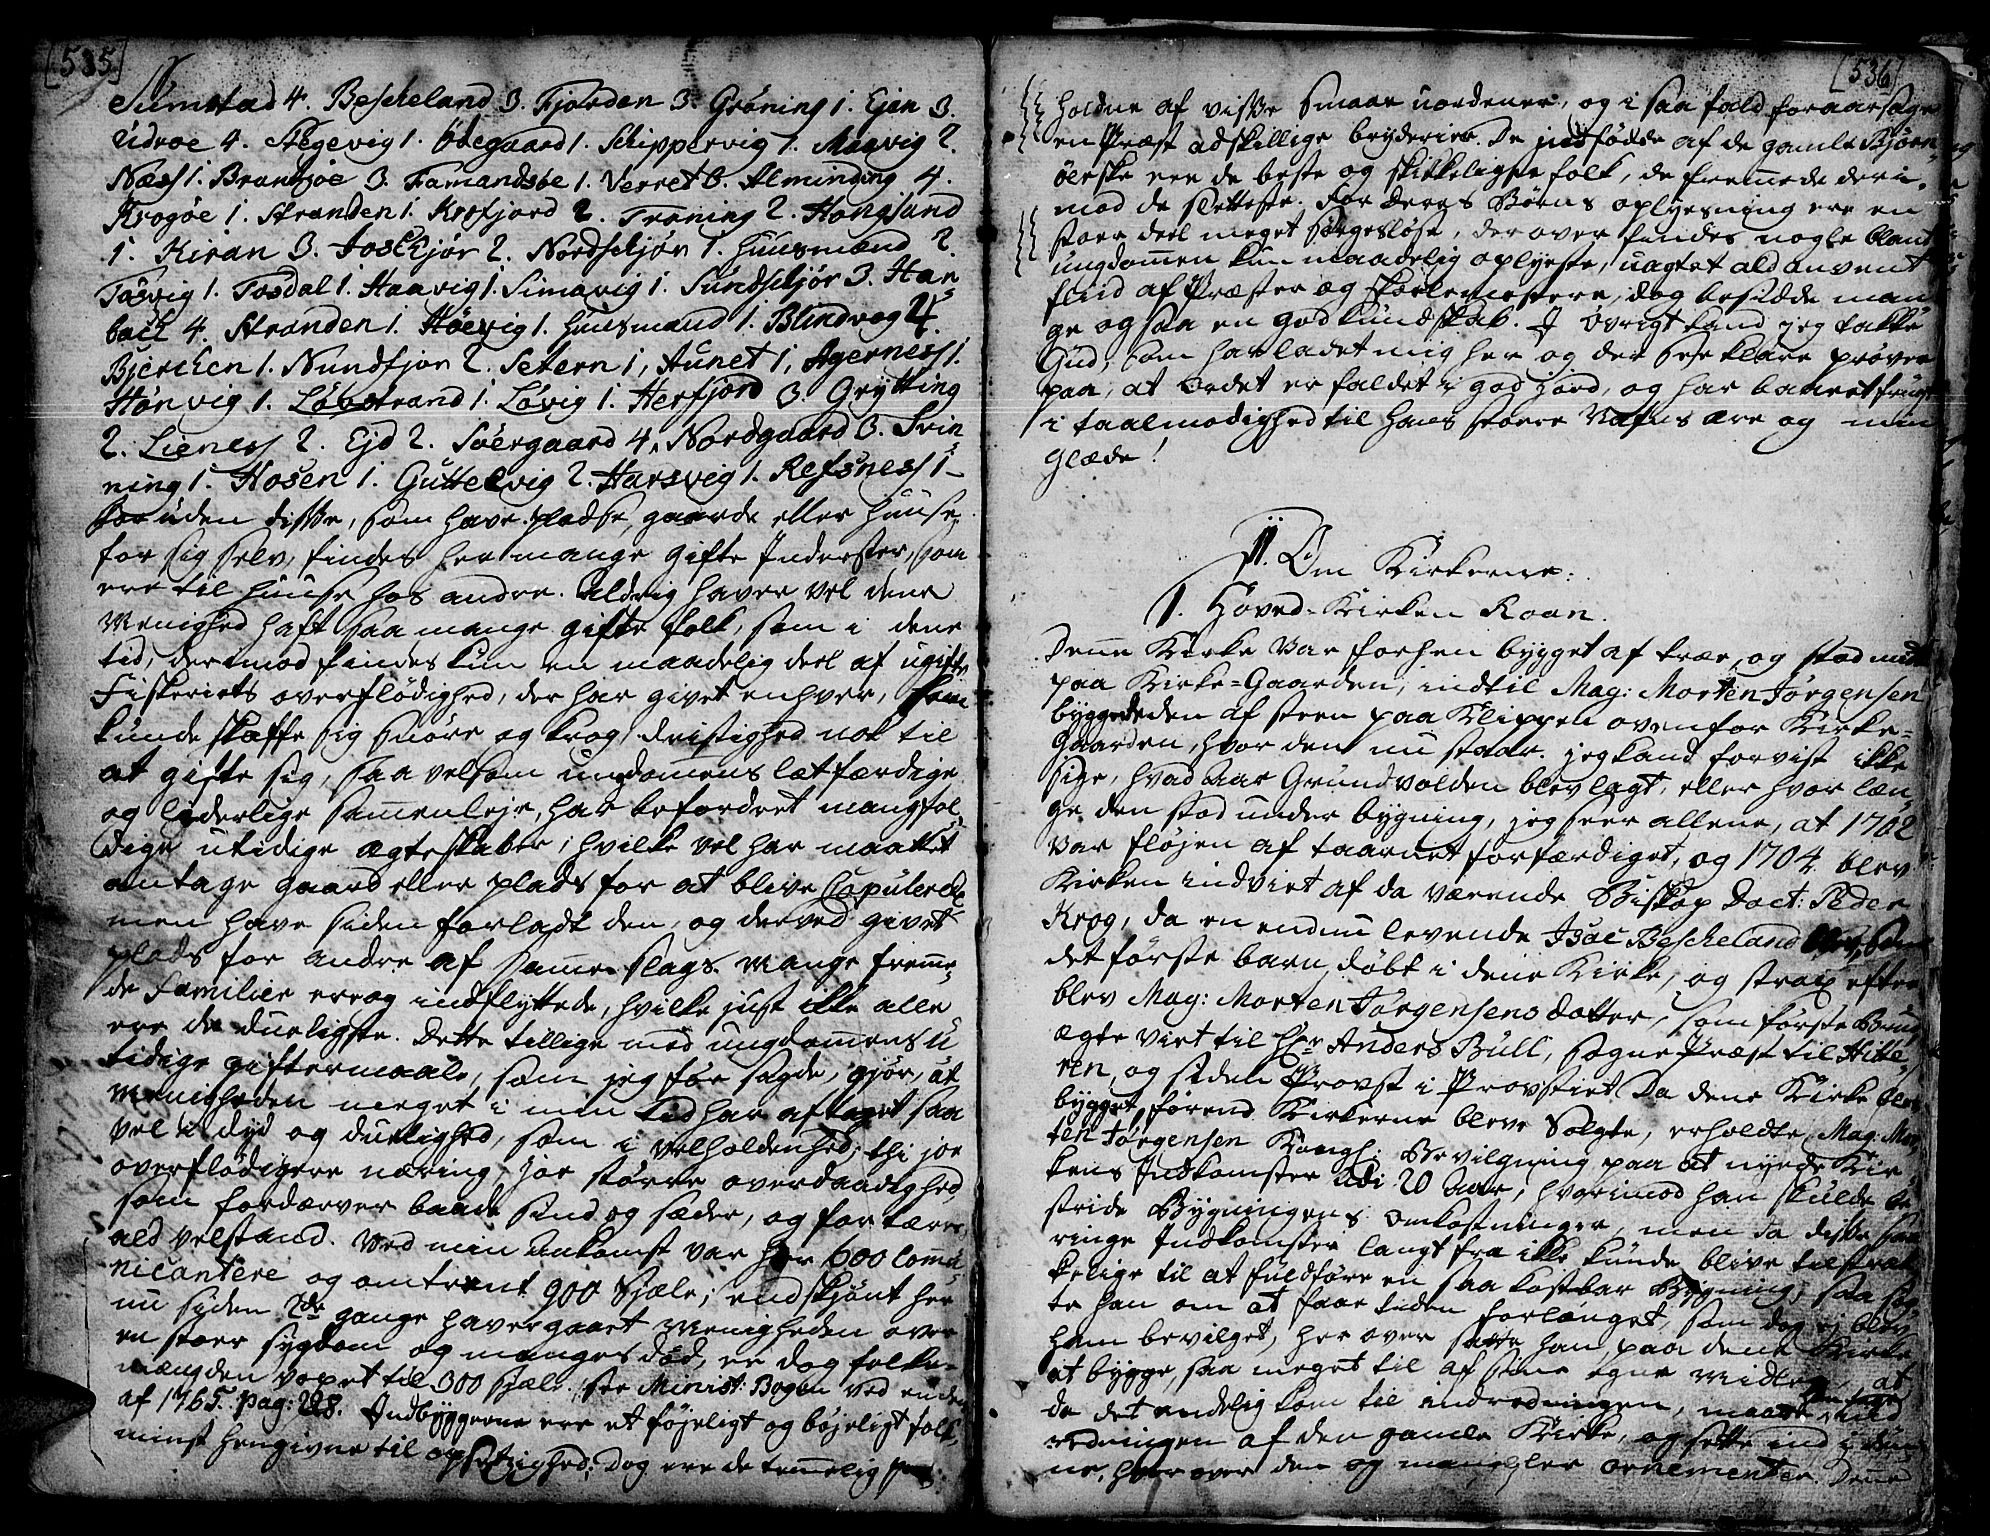 [535]
Sumstad 4. Bescheland 3. Fjorden 3. Grøning 1. Ejen 3.
Udroe 4. Stegevig 1. Ødegaard 1. Schippervig 1. Maavig 2.
Næss 1. Brandsøe 3. Tamandsøe 1. Verret 6. Alminding 4.
Krogøe 1. Stranden 1. Krofjord 2. Traning 2. Hongsand
1. Kiran 3. Foschjør 2. Nordschjør 1. Huusmænd 2.
Tøsvig 1. Tosdal 1. Haavig 1. Simavig 1. Sundschjør 3. Har-
bach 4. Stranden 1. Høevig 1. Huusmand 1. Blindvog 4.
Bjerchen 1. Nundfjor 2. Setern 1, Aunet 1, Agerness 1.
Hønvig 1. Løbstrand 1. Løvig 1. Herfjord 3. Grytting
2. Lieness 2. Ejd 2. Søergaard 4. Nordgaard 3. Svin-
ning 1. Hosen 1. Guttelvig 2. Harsvig 1. Refsness 1-
foruden disse, som have pladse, gaarde eller huuse
for sig selv, findes her mange gifte Inderster, som
ere til huuse hos andre. Aldrig haver vel denne
Menighed haft saa mange gifte folk, som i denne
tid, derimod findes kun en maadelig deel af ugifte
Fiskeriets overflødighed, der har givet enhver, som
kunde skaffe sig snøre og krog dristighed nok til
at gifte sig, saa velsom ungdomens letfærdige
og liderlige sammenleje, har befordret mangfol-
dige utidige ægteskaber, hvilke vel har maattet
antage gaard eller plads for at blive Copulerede
men have siden forladt den, og derved givet
plads for andre af samme slags. Mange fremme-
de Familier ere og indflyttede, hvilke just ikke alle
ere de dueligste. Dette tillige med ungdomens u
tidige giftermaale, som jeg før sagde, gjør, at
Menigheden meget i min tid har aftaget saa
vel i dyd og duelighed, som i velholdenhed; thi joe
overflødigere næring, joe større overdaadighed
som fordærver baade sind og sæder, og fortærer
ald velstand. Ved min Ankomst var her 600 Comu-
nicantere og omtrent 900 Sjæle; endskjønt her
nu siden 2de gange haver gaaet Menigheden over
en stoer sygdom og manges død, er dog folke-
mængden voxet til 300 sjæle. see Minist: Bogen ved enden
af 1765. pag: 228. Indbyggerne ere et føjeligt og bøjeligt folk,
mindst hengivne til opsetsighed; Dog ere de temmelig
[536]
holdne af visse smaae uordener, og i saa fald foraarsage
en Præst adskillige bryderier. De indfødde af de gamle Bjørn-
øerske ere de beste og skikkeligste folk, de fremmede deri-
mod de sletteste. For deres Børns oplysning ere en
stoer deel meget sørgesløse, derover findes nogle blant
ungdommen kun maadelig oplyste, uagtet ald anvent
fliid af Præster og skolemestere, dog besidde man
ge ogsaa en god kundskab. I øvrigt kand jeg takke
Gud, som har ladet mig her og der see klare prøver
paa, at Ordet er faldet i god jord, og har baaret frugt
i taalmodighed til hans stoere Nafns ære og min
glæde!
II. Om Kirkerne:
1. Hoved-Kirken Roan.
Denne Kirke var forhen bygget af træe, og stod midt
paa Kirke-Gaarden, indtil Mag: Morten Jørgensen
byggede den af steen paa Klippen ovenfor Kirke-
Gaarden, hvor den nu staar. jeg kand forvist ikke
sige, hvad aar Grundvolden blev lagt, eller hvor læn-
ge den stod under bygning, jeg seer allene, at 1702
var fløjen af taarnet forfærdiget, og 1704 blev
Kirken indviet af da værende Biskop Doct: Peder
Krog, da en endnu levende Isac Bescheland blev, som
det første barn, døbt i denne Kirke, og strax efter
blev Mag: Morten Jørgensens datter, som første Brud
ægte viet til Hr Anders Bull, sogne Præst til Hitte-
ren, og siden Provst i Provstiet. Da denne Kirke blev
bygget, førend Kirkerne bleve solgte, erholdte Mag: Mor-
ten Jørgensen Kongl: Bevilgning paa at nyde Kir
kens Indkomster udi 20 Aar, hvorimod han skulde be-
stride Bygningens omkostninger, men da disse saa
ringe Indkomster langt fra ikke kunde blive tilstræk
kelige til at fuldføre en saa kostbar Bygning, saa søg-
te han om at faae tiden forlænget, som dog ej blev
ham bevilget, her over satte han, paa denne Kirke
at bygge, saa meget til af sine egne Midler, at
da det endelig kom til indredningen, maatte han tage ind
redningen af den gamle Kirke, og sette ind i den
ne, hvorover den og mangler ornementer. Denne